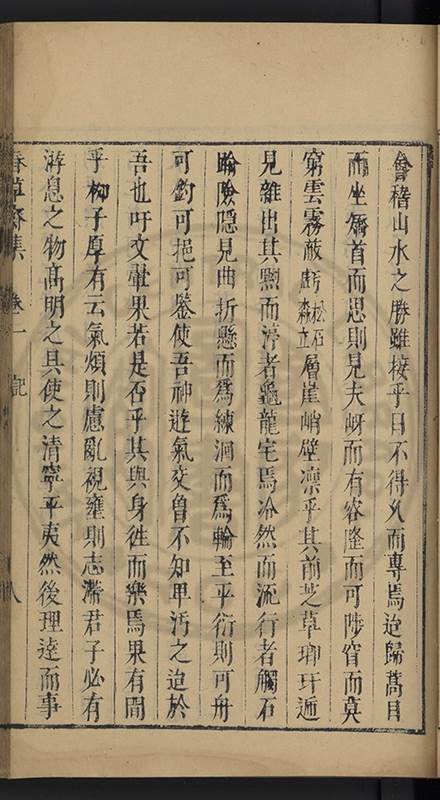 會稽山水之勝雖接乎目不得久而專焉迨歸蒿目
而坐矯首而思則見夫岈而有容隆而可陟窅而莫
窮雲霧蔽虧松石森立層崖峭壁凛乎其前芝草琅玕遍
見雜出其黝而渟者龜龍宅焉泠然而流行者觸石
踰險隱見曲折懸而爲練洄而爲輪至乎衍則可舟
可釣可挹可鑒使吾神遊氣交曾不知卑汚之迫於
吾也吁文暈果若是否乎其與身徃而樂焉果有間
乎柳子厚有云氣煩則慮亂視壅則志滯君子必有
游息之物高明之具使之清寧平夷然後理達而事
春草齋集 卷一 記 八